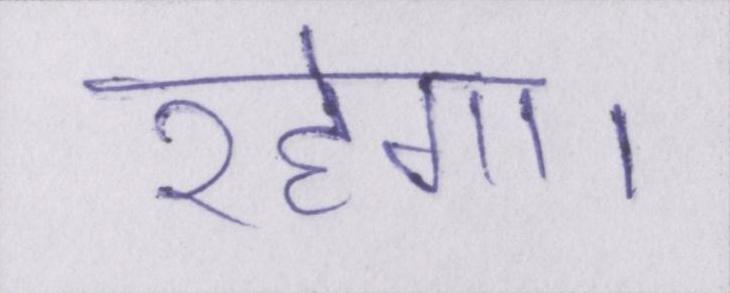 रहेगा।